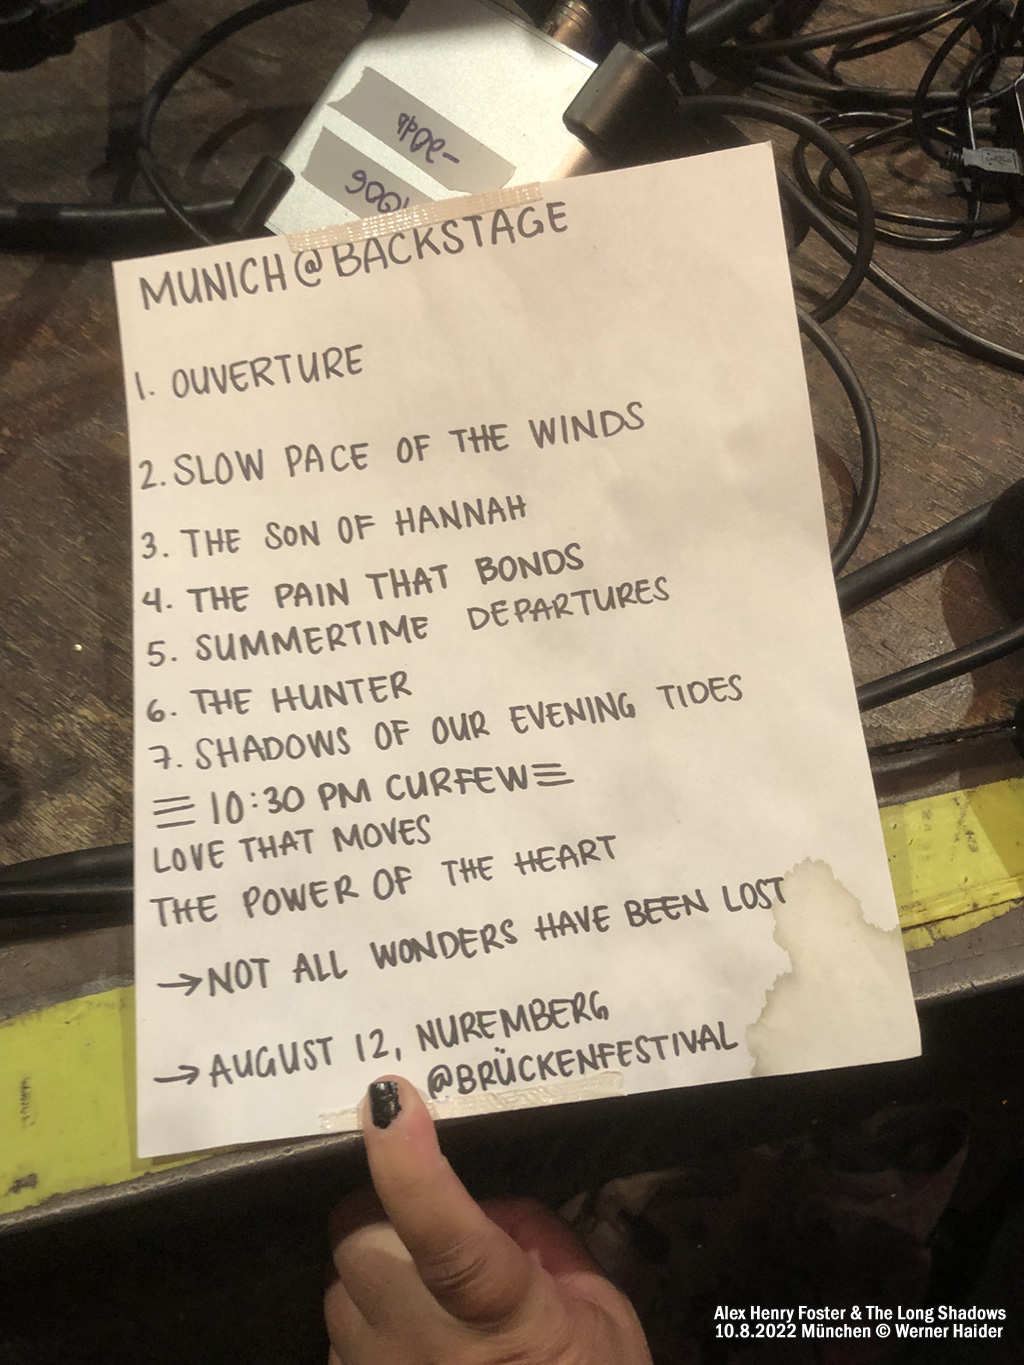 MUNICH@BACKSTAGE
1. OUVERTURE
2. SLOW PACE OF THE WINDS
3. THE SON OF HANNAH
4. THE PAIN THAT BONDS
5. SUMMERTIME DEPARTURES
6. THE HUNTER
7. SHADOWS OF OUR EVENING TIDES
≡ 10:30 PM CURFEW ≡
LOVE THAT MOVES
THE POWER OF THE HEART
→NOT ALL WONDERS HAVE BEEN LOST
→AUGUST 12, NUREMBERG
@BRÜCKENFESTIVAL
Alex Henry Foster & The Long Shadows
10.8.2022 München © Werner Haider